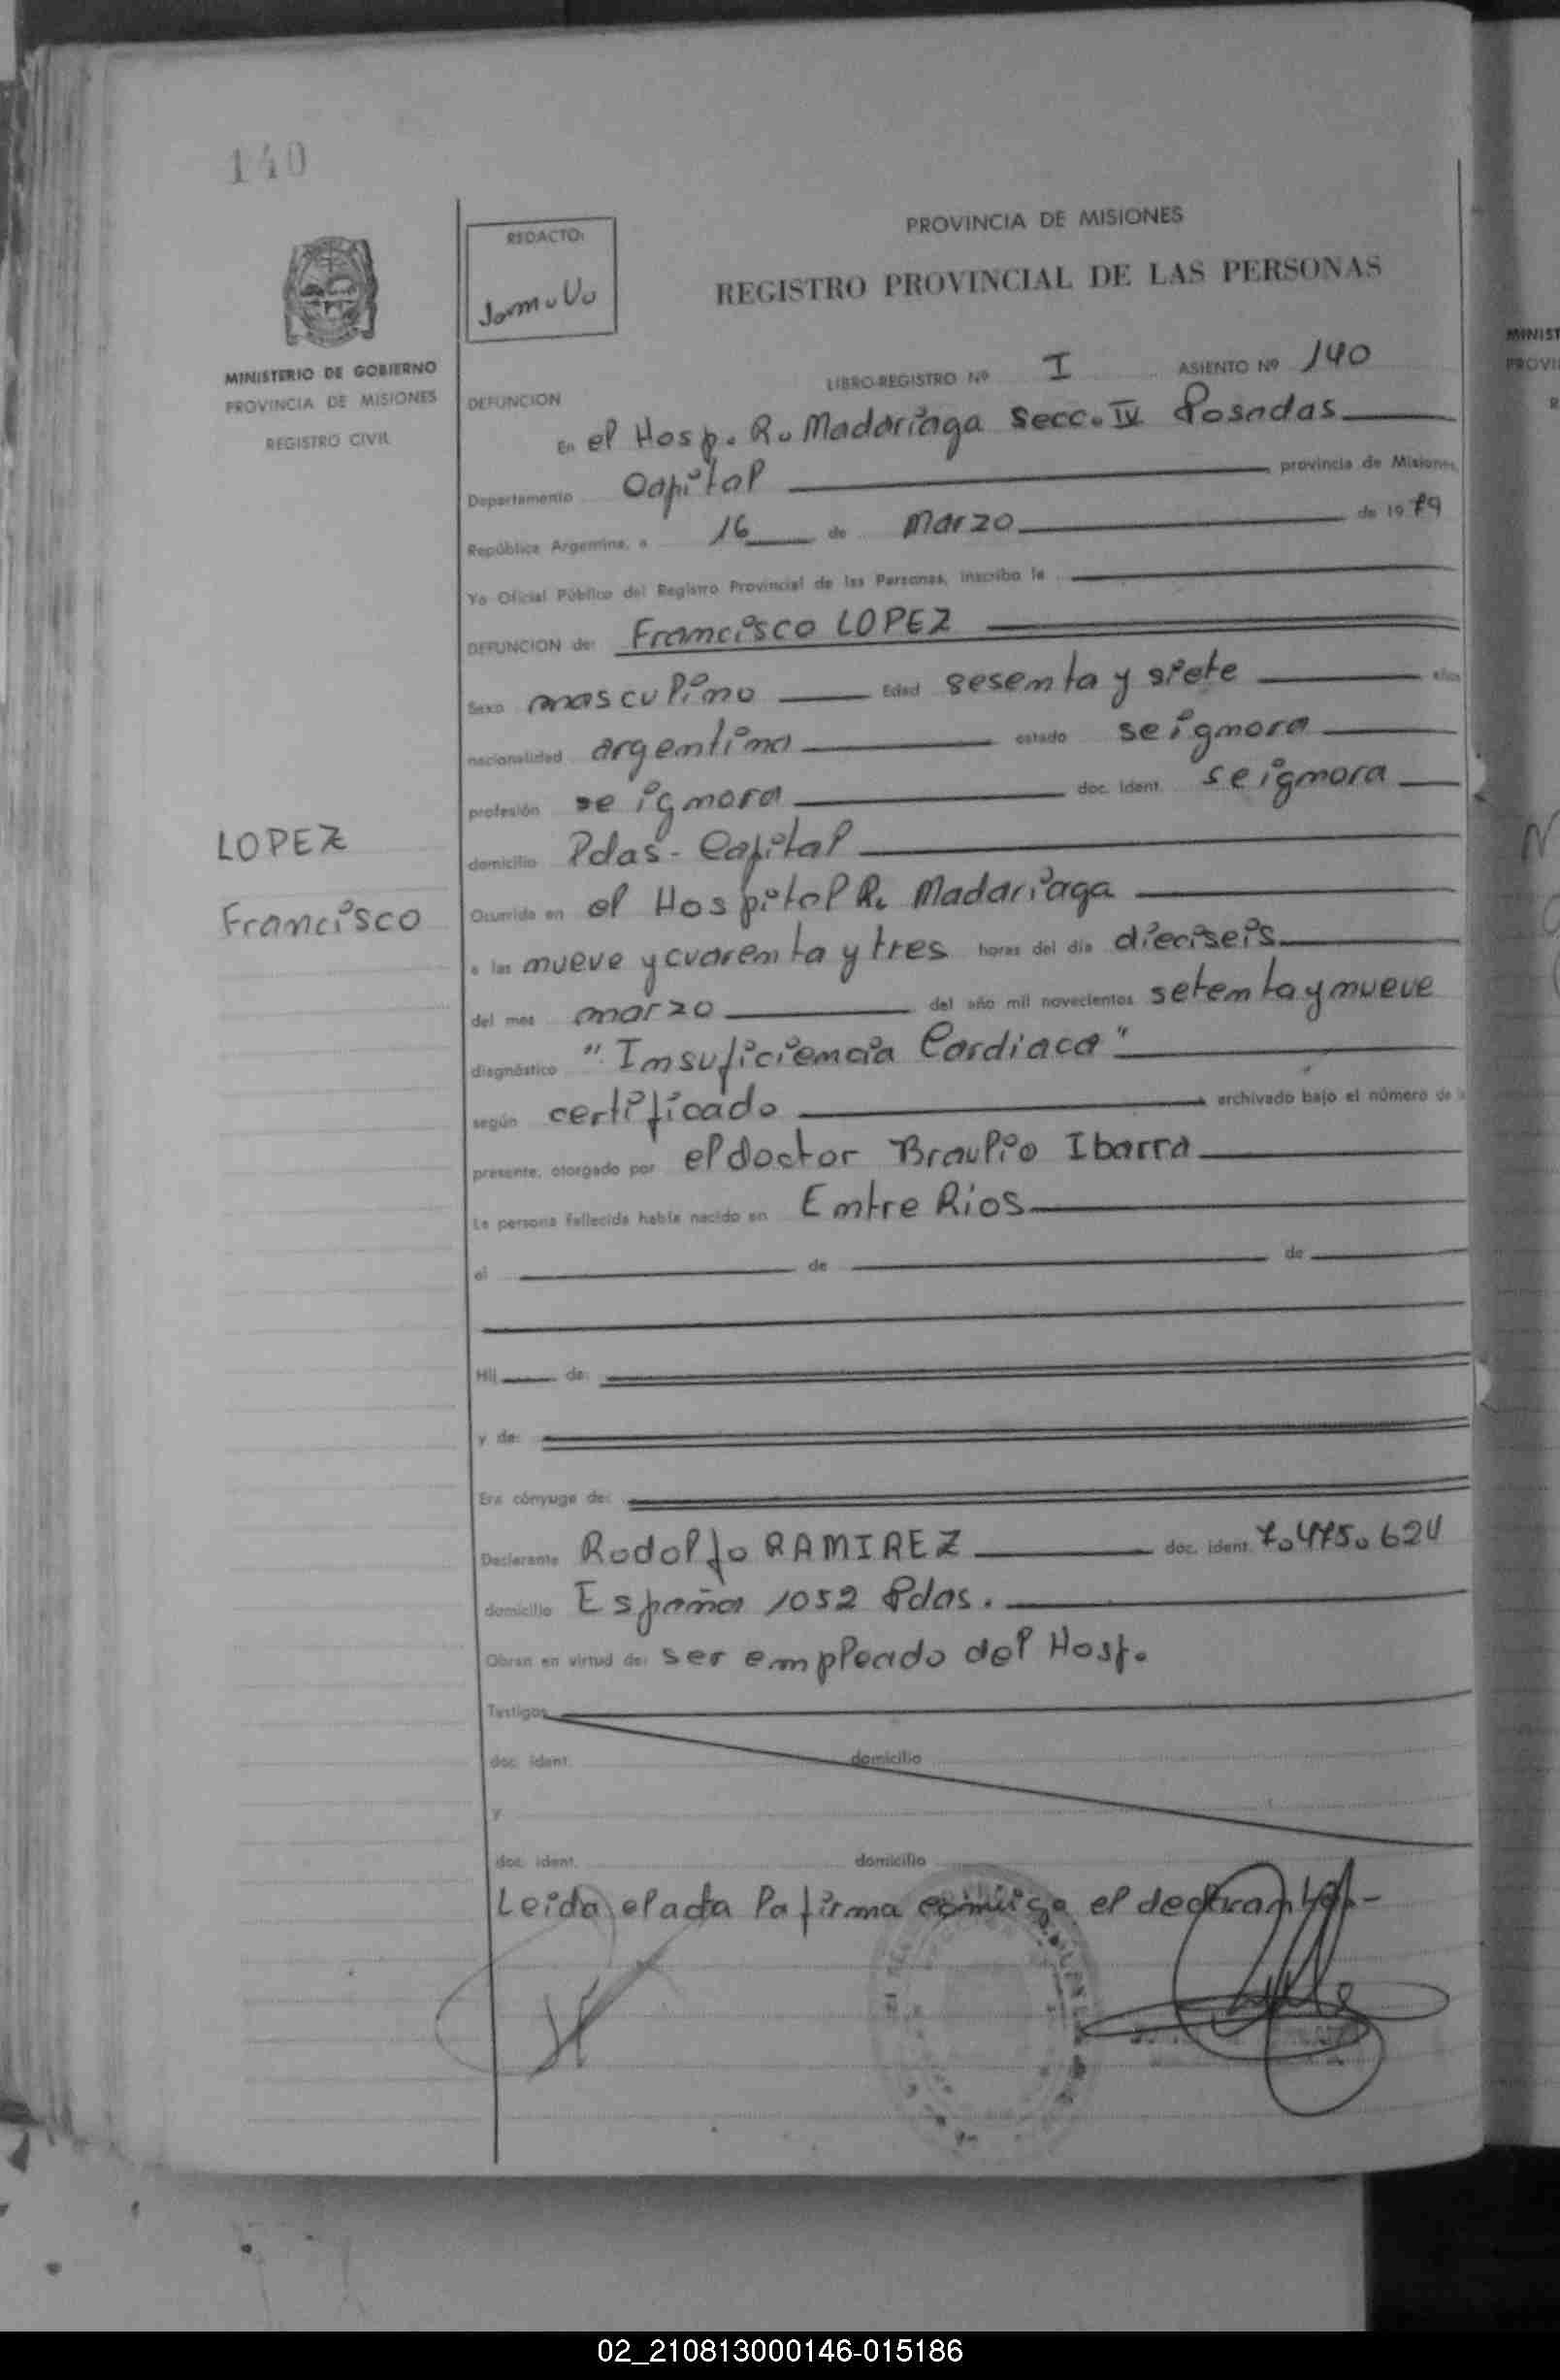 140
REDACTO:
PROVINCIA DE MISIONES
REGISTRO PROVINCIAL DE LAS PERSONAS
MINISTERIO DE GOBIERNO
PROVINCIA DE MISIONES
REGISTRO CIVIL
LIBRO-REGISTRO Nº I ASIENTO Nº 140
DEFUNCION
En el Hosp. R. Madariaga Secc. IV Posadas
Departamento Capital provincia de Misiones,
República Argentina, a 16 de Marzo de 1979
Yo Oficial Público del Registro Provincial de las Personas, inscribo la
DEFUNCION de: Francisco LOPEZ
Sexo masculino Edad sesenta y siete años
nacionalidad argentina estado se ignora
profesión se ignora doc. ident. se ignora
LOPEZ
Francisco
domicilio Pdas - Capital
Ocurrida en el Hospital R. Madariaga
a las nueve y cuarenta y tres horas del día dieciseis
del mes marzo del año mil novecientos setenta y nueve
diagnóstico "Insuficiencia Cardiaca"
según certificado archivado bajo el número de la
presente, otorgado por el doctor Braulio Ibarra
La persona fallecida había nacido en Entre Rios
el de de
Hij de:
y de:
Era cónyuge de:
Declarante Rodolfo RAMIREZ doc. ident. 7.475.624
domicilio España 1052 Pdas.
Obran en virtud de: ser empleado del Hosp.
Testigos
doc. ident. domicilio
y
doc. ident. domicilio
Leida el acta la firma conmigo el declarante.-
MINIST
PROVI
R
02_210813000146-015186